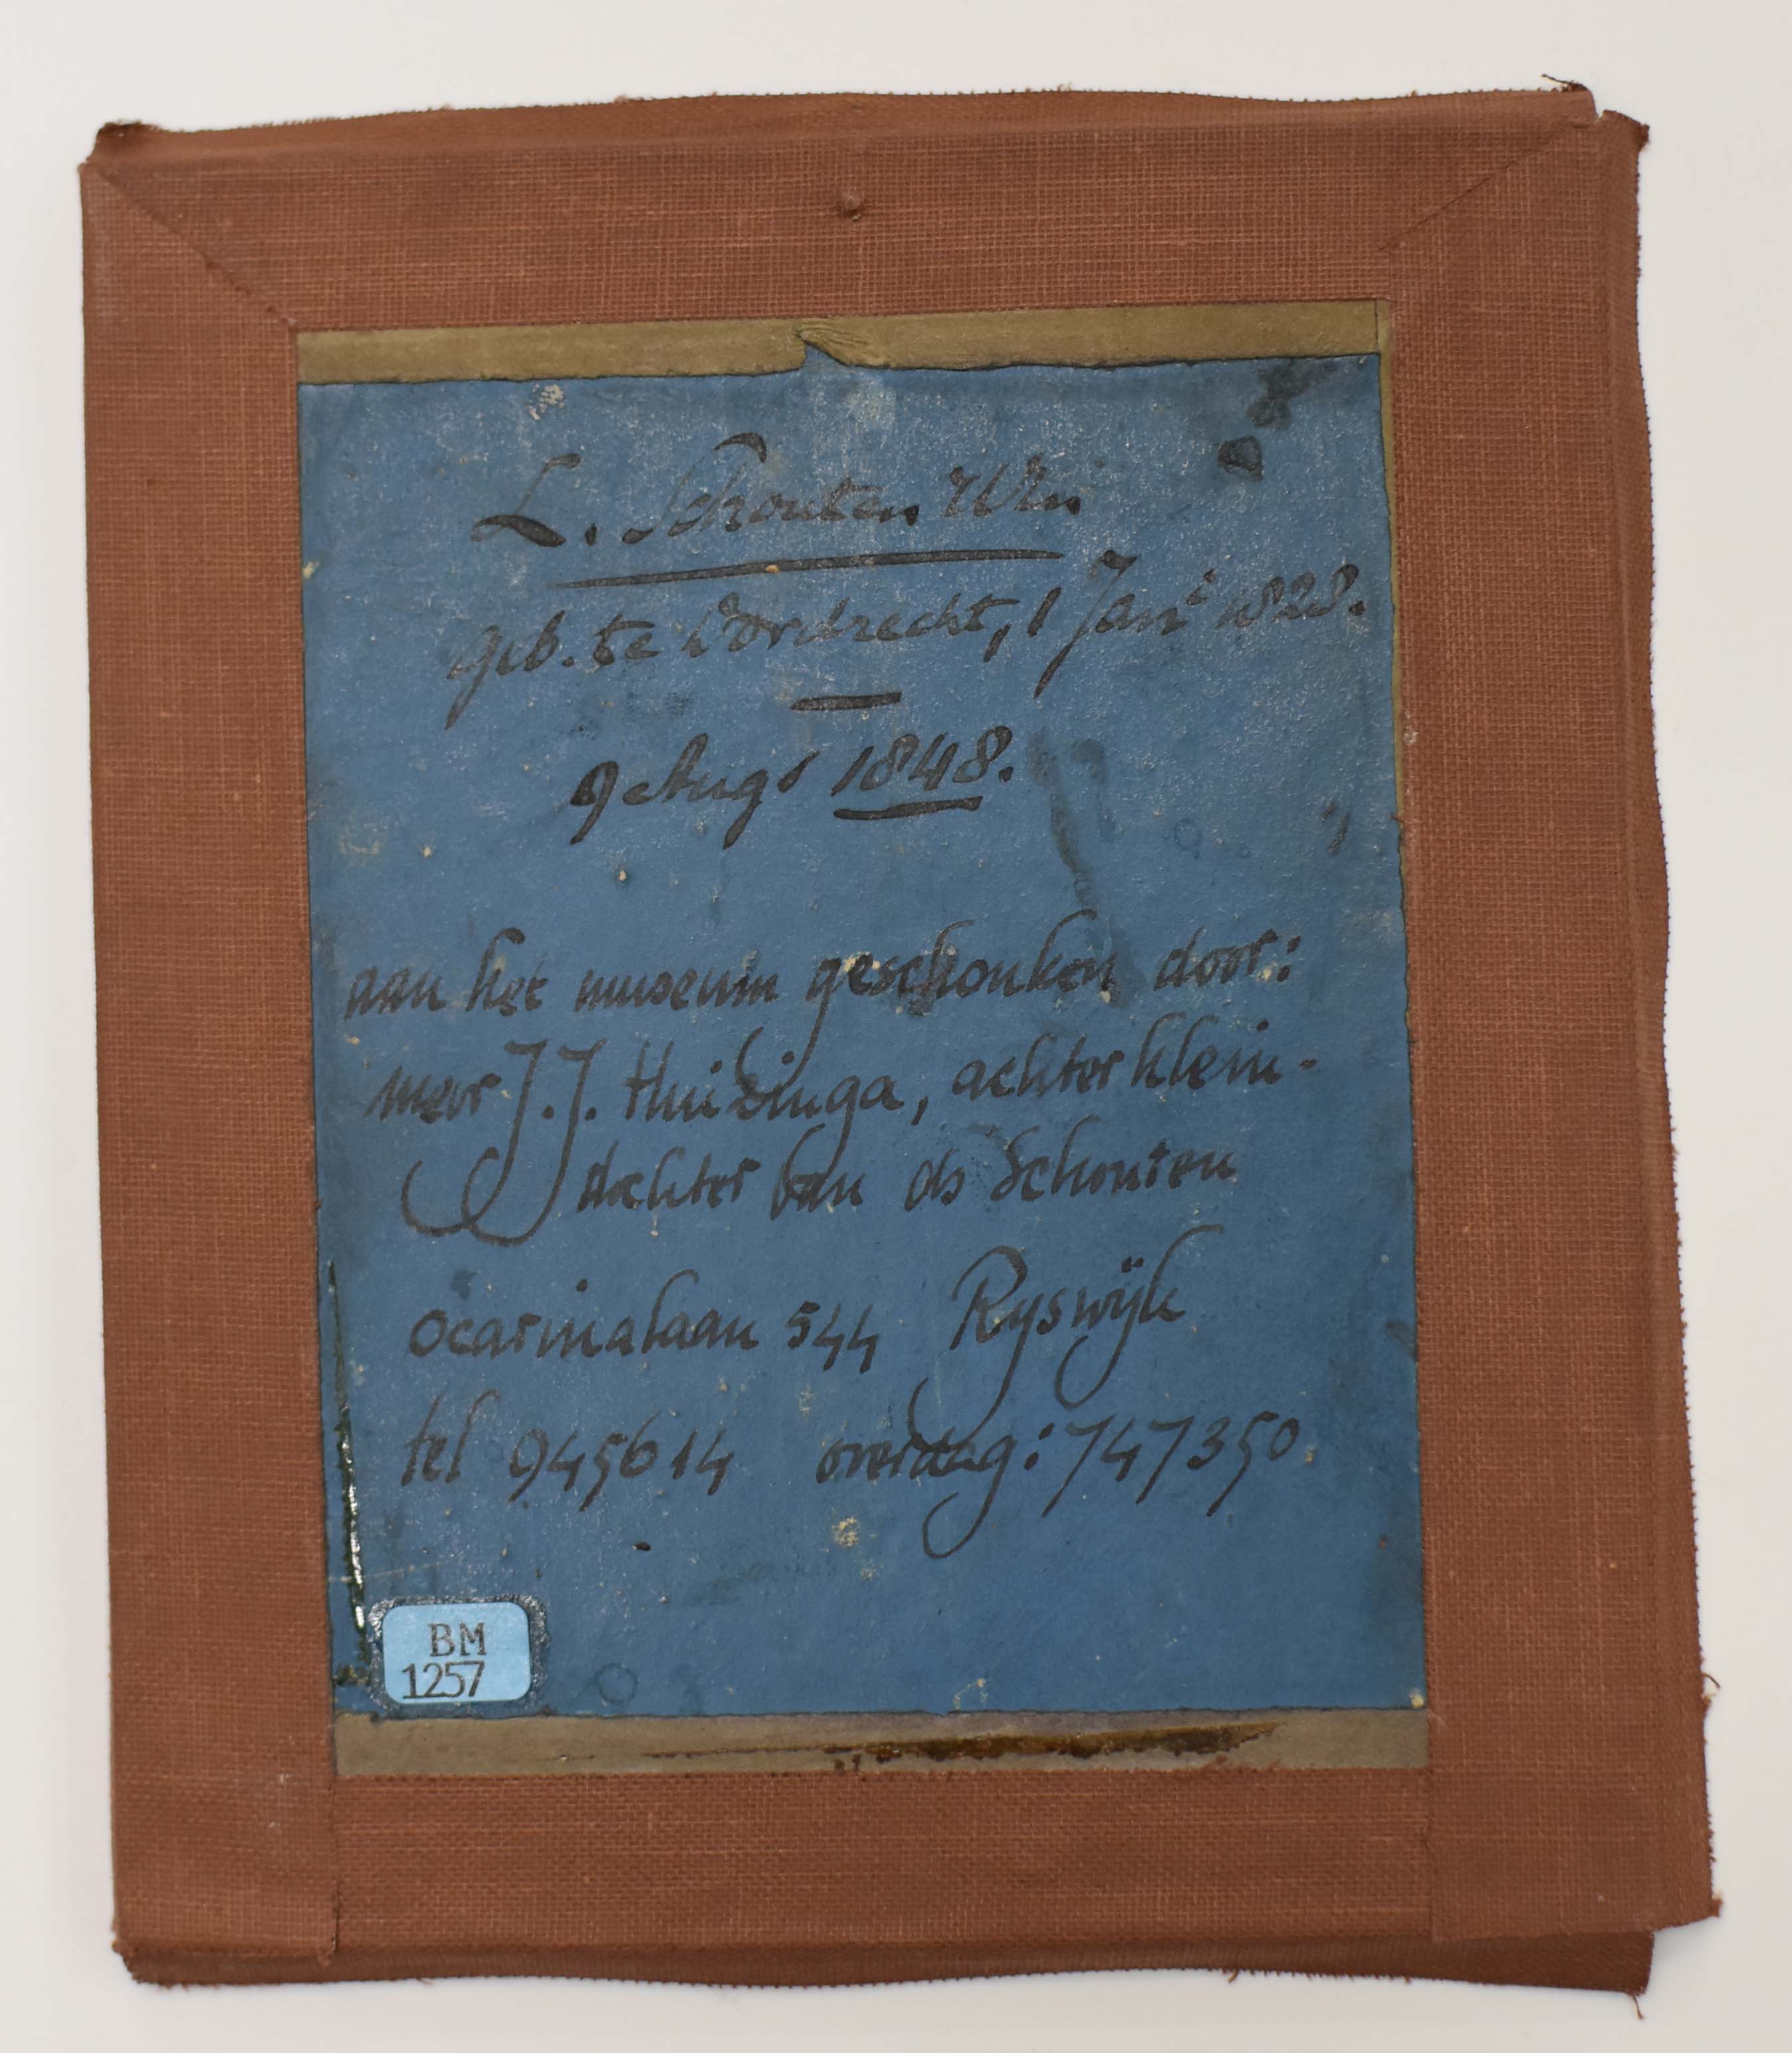 L. Schouten WZn
geb. te Dordrecht, 1 Janⁱ 1828.
9 Augs 1848.
aan het museum geschonken door:
mevr J.J. Huizinga, achterklein-
dochter van ds Schouten
Ocarinalaan 544 Ryswÿk
tel 945614 overdag: 747350
BM
1257